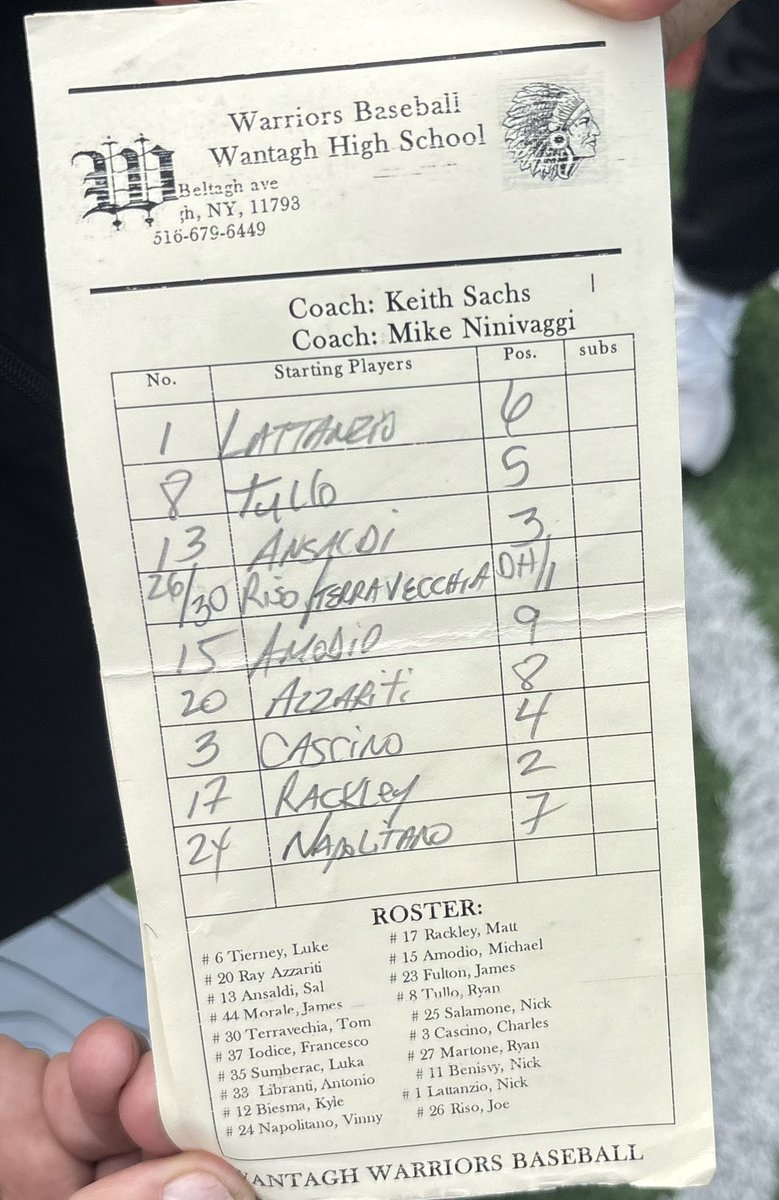 Warriors Baseball
Wantagh High School
Beltagh ave
gh, NY, 11793
516-679-6449
Coach: Keith Sachs
Coach: Mike Ninivaggi
No. Starting Players Pos. subs
1 LATTANZIO 6
8 Tullo 5
13 ANSALDI 3
26/30 Riso/TERRAVECCHIA DH/1
15 AMODIO 9
20 AZZARiti 8
3 CASCINO 4
17 RACKley 2
24 NAPOLITANO 7
ROSTER:
# 6 Tierney, Luke
# 20 Ray Azzariti
# 13 Ansaldi, Sal
# 44 Morale, James
# 30 Terravechia, Tom
# 37 Iodice, Francesco
# 35 Sumberac, Luka
# 33 Libranti, Antonio
# 12 Biesma, Kyle
# 24 Napolitano, Vinny
# 17 Rackley, Matt
# 15 Amodio, Michael
# 23 Fulton, James
# 8 Tullo, Ryan
# 25 Salamone, Nick
# 3 Cascino, Charles
# 27 Martone, Ryan
# 11 Benisvy, Nick
# 1 Lattanzio, Nick
# 26 Riso, Joe
WANTAGH WARRIORS BASEBALL